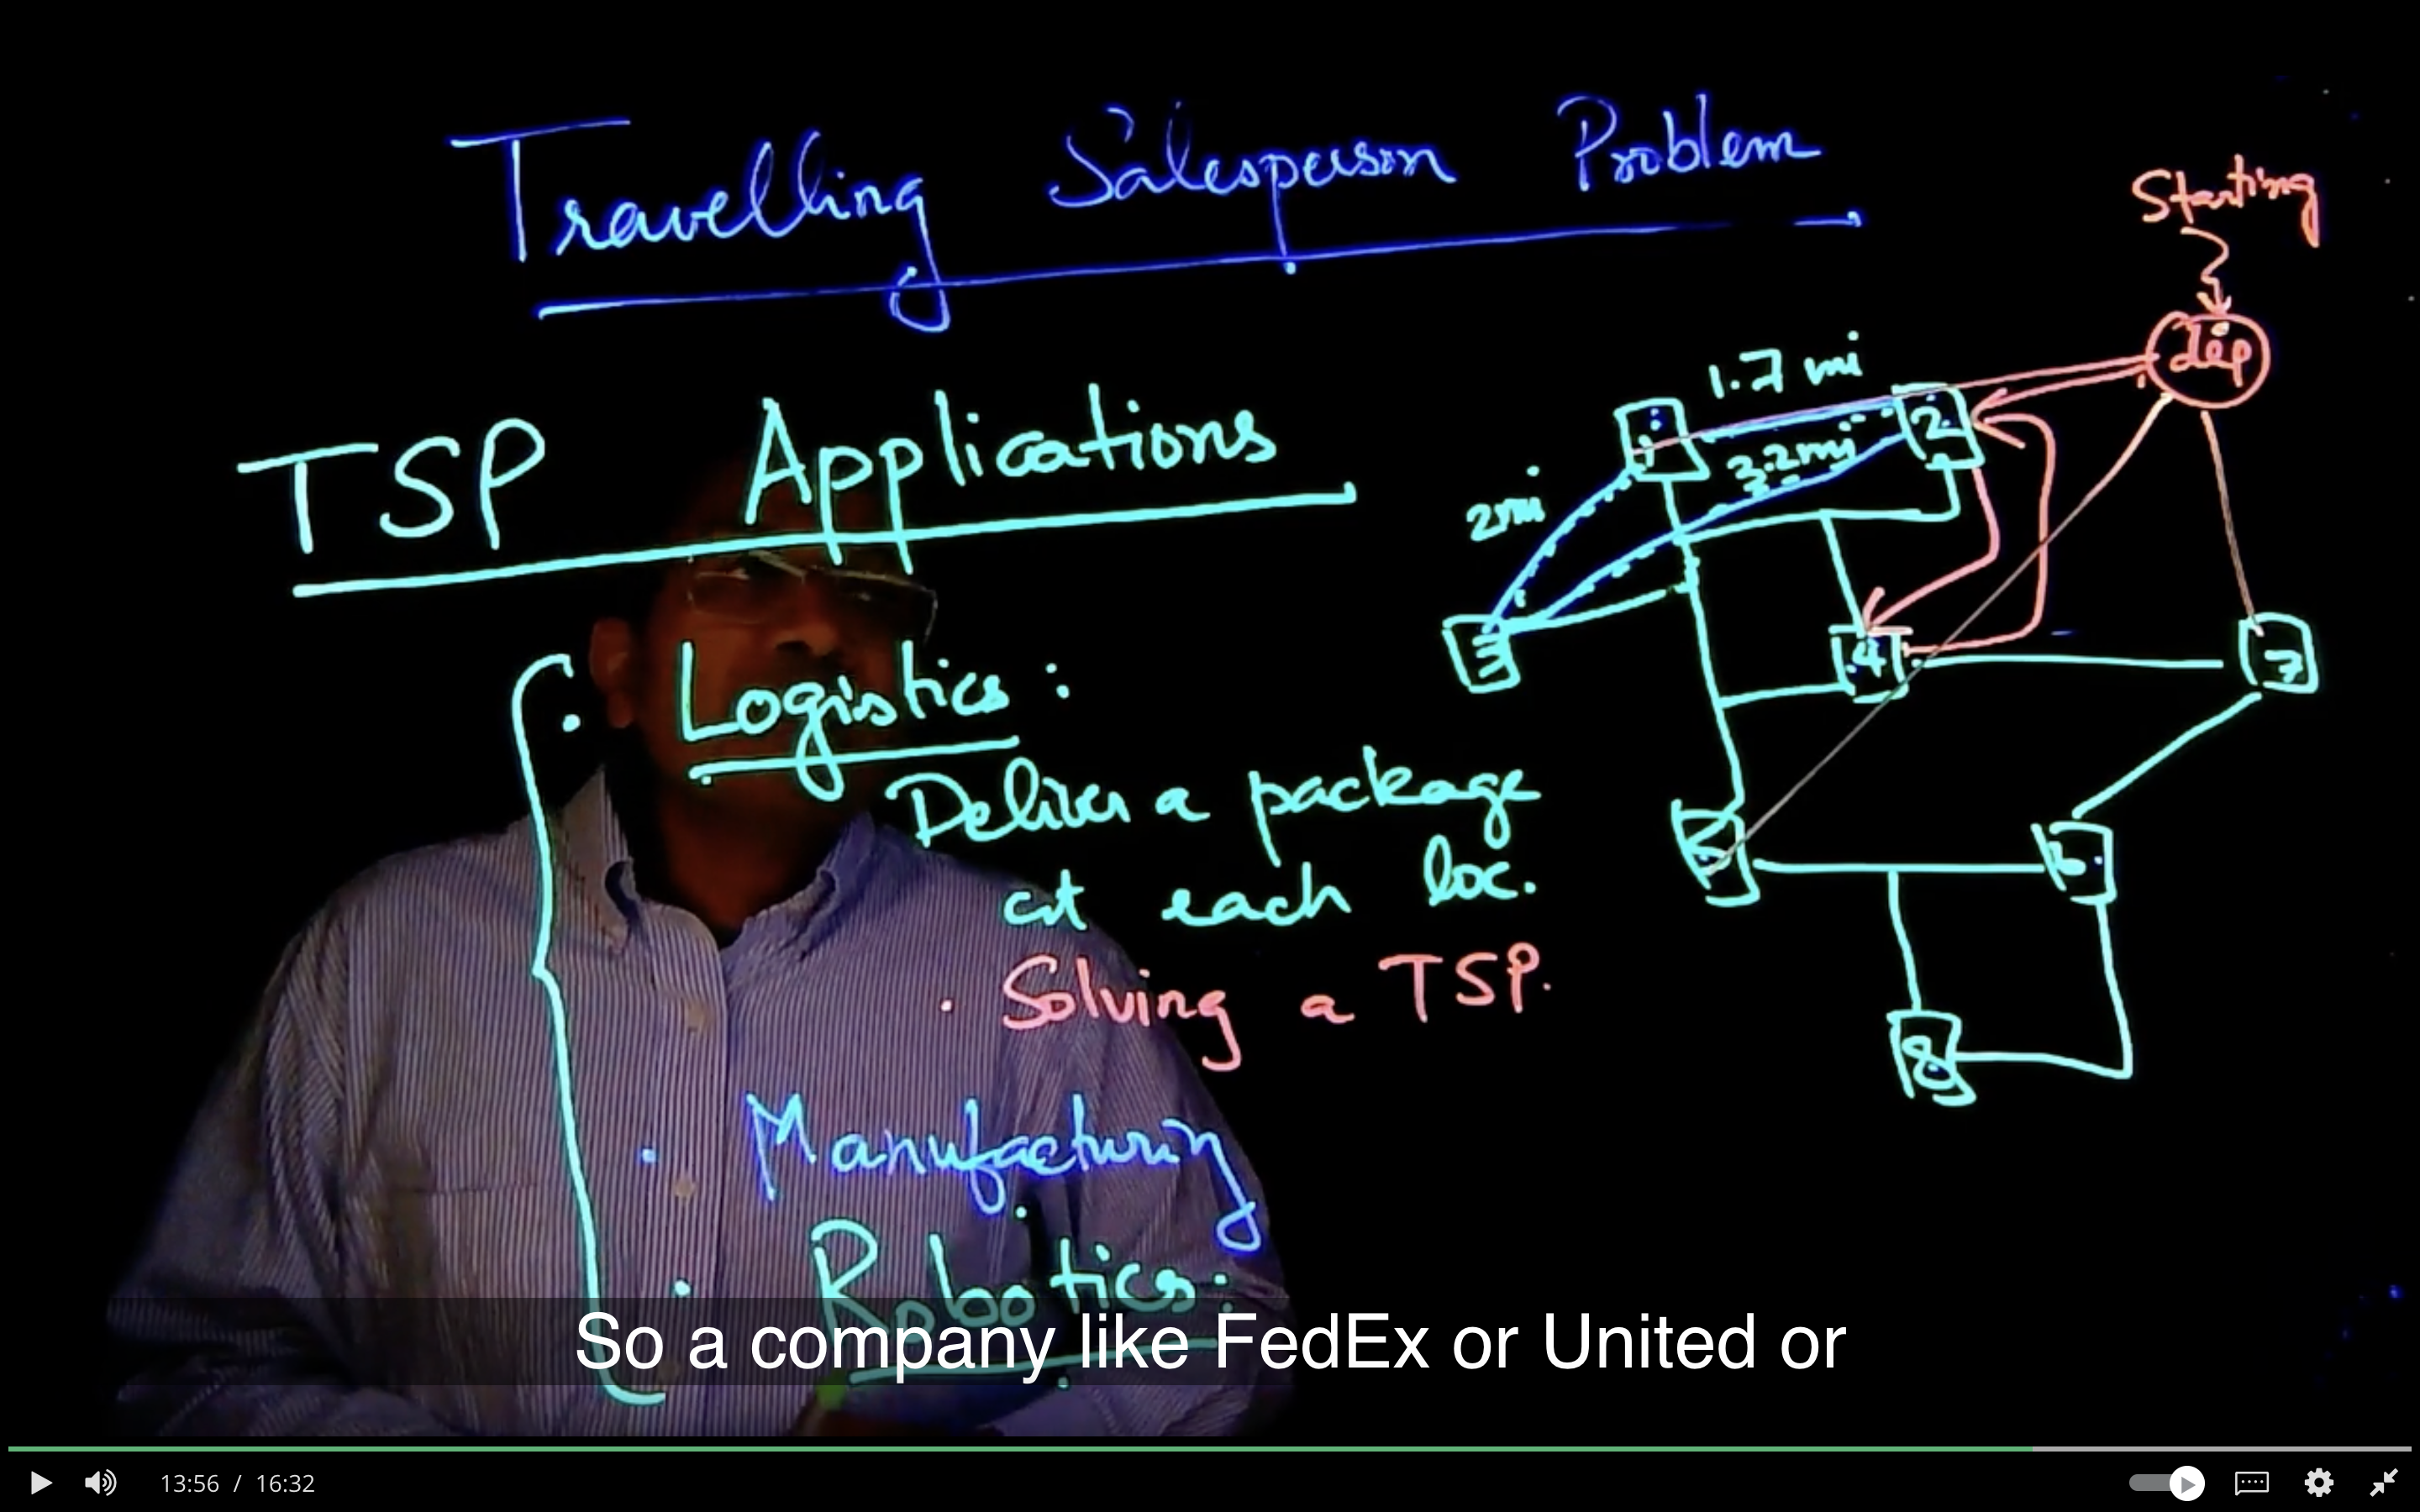 Travelling Salesperson Problem
Starting
dep
TSP Applications
1.7 mi
1
2
3.2 mi
2mi
3
4
7
Logistics:
Deliver a package
at each loc.
5
6
• Solving a TSP.
8
• Manufacturing
• Robotics:
So a company like FedEx or United or
13:56 / 16:32